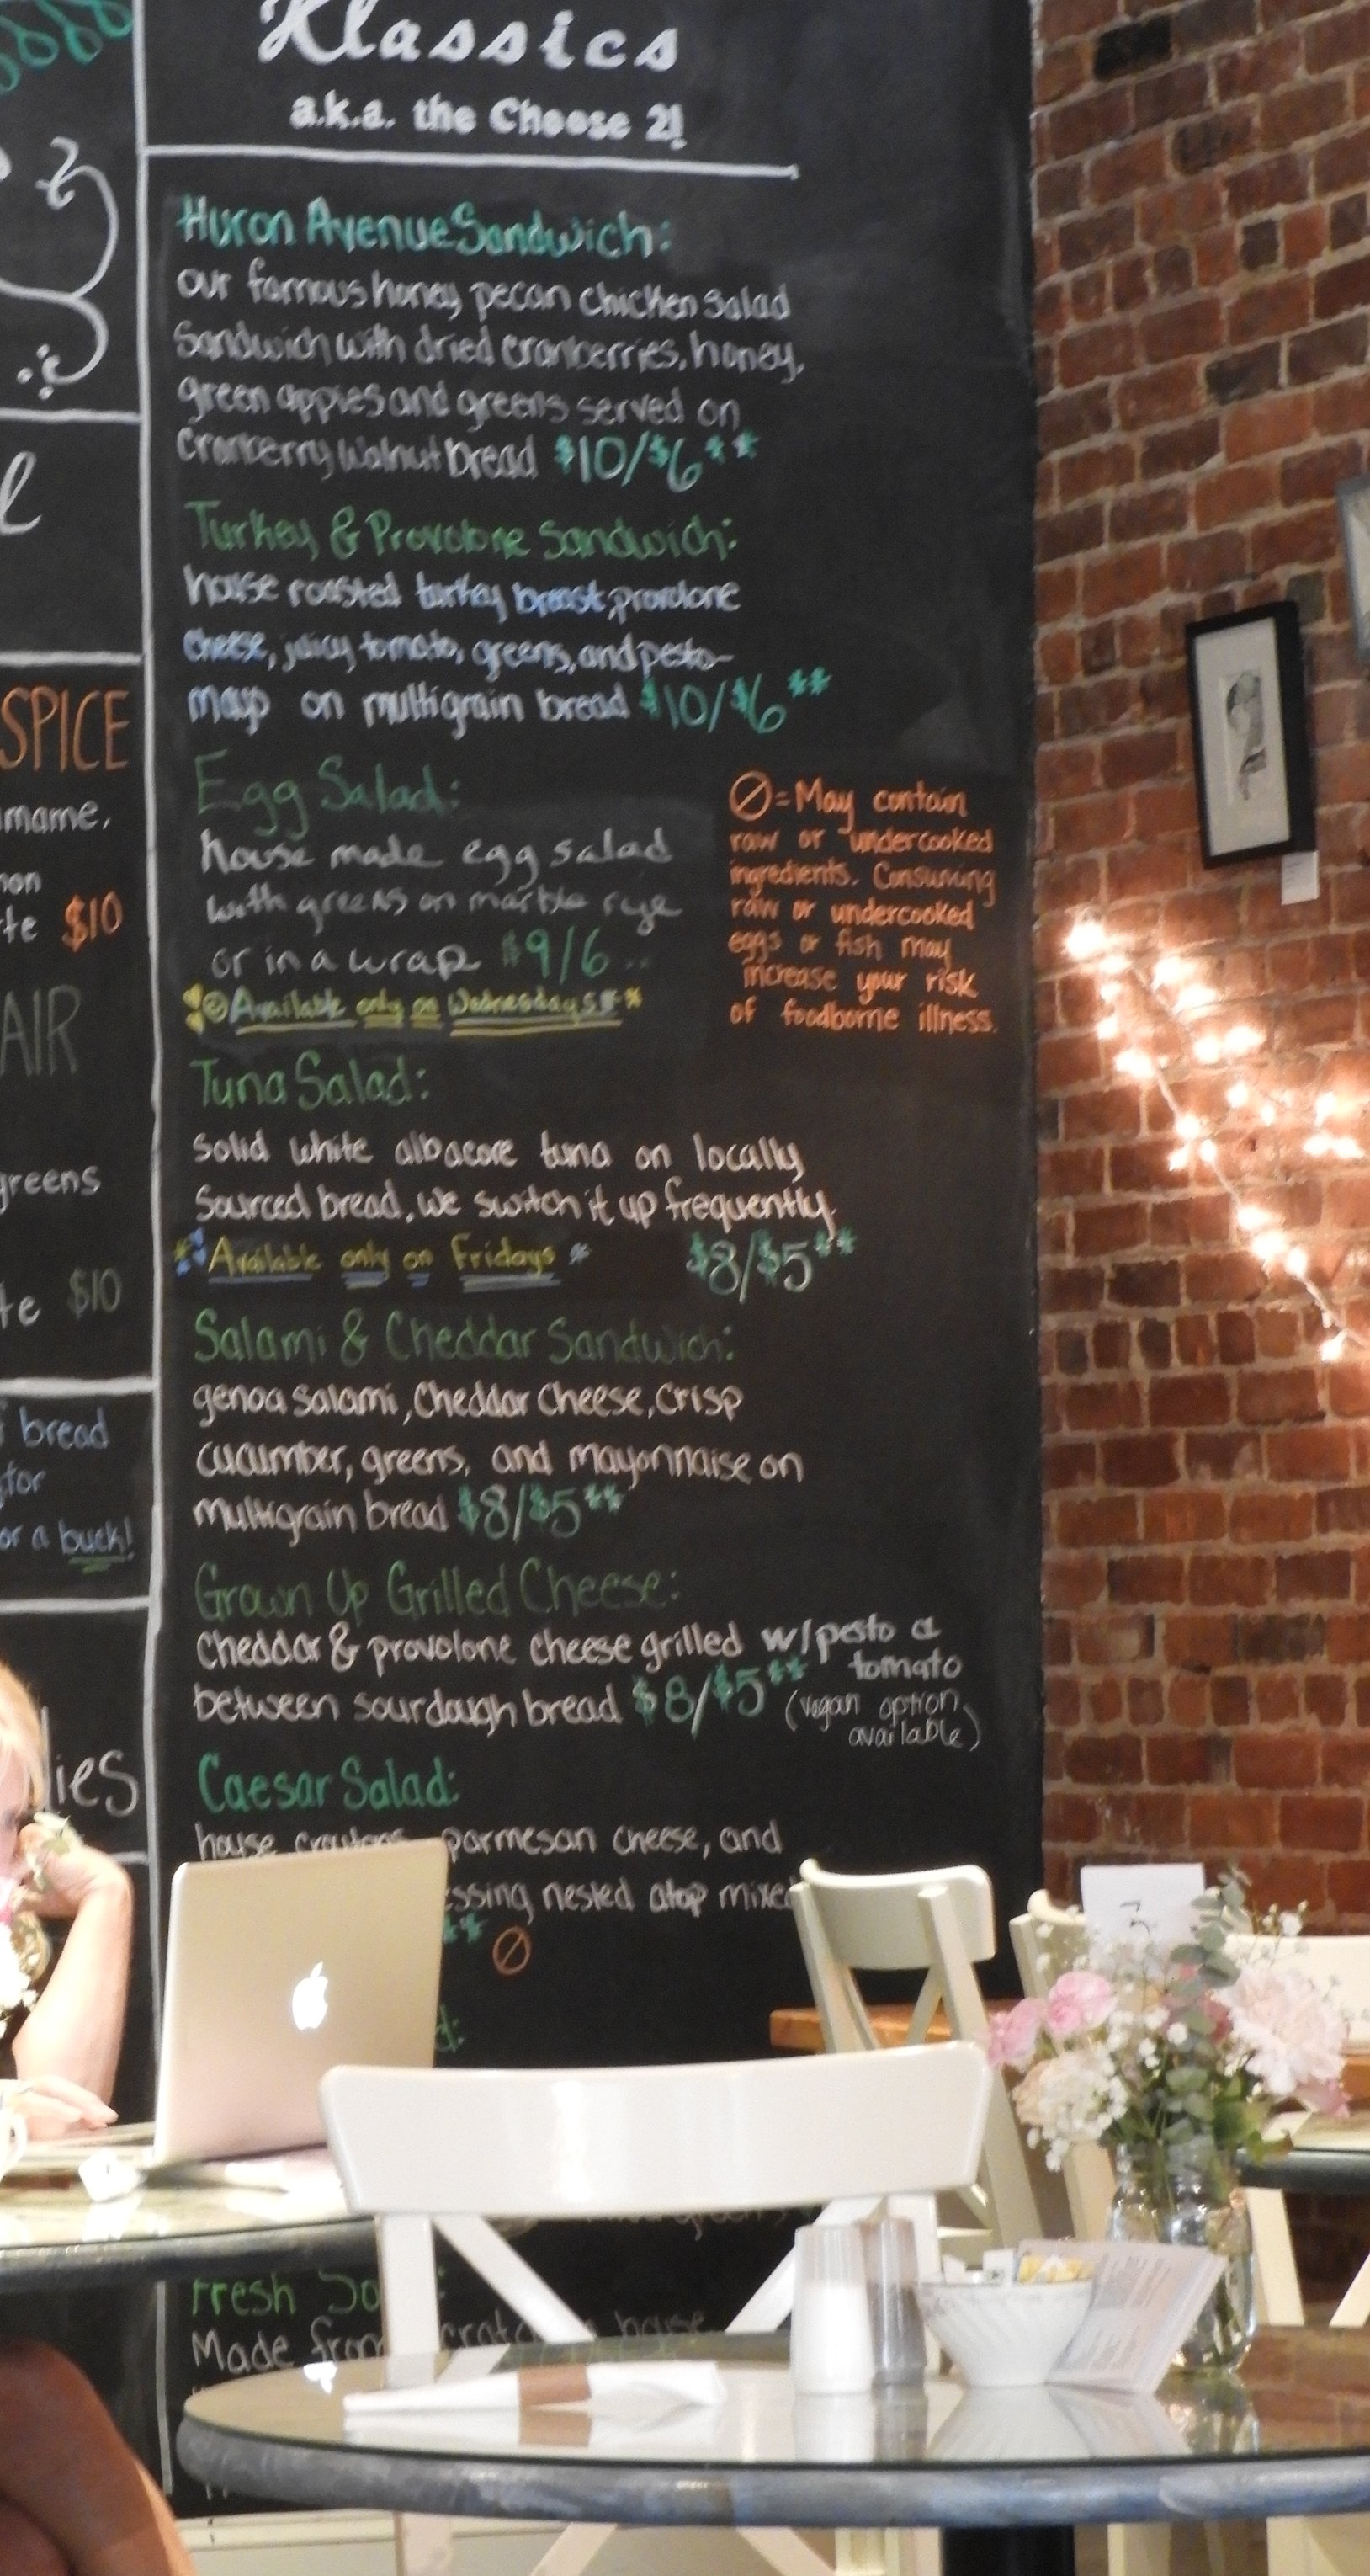 Klassics
a.k.a. the Choose 2!
Huron Avenue Sandwich:
our famous honey pecan chicken salad
Sandwich with dried cranberries, honey,
green apples and greens served on
Cranberry Walnut bread $10/$6**
Turkey & Provolone Sandwich:
house roasted turkey breast, provolone
cheese, juicy tomato, greens, and pesto-
mayo on multigrain bread $10/$6**
Egg Salad:
house made egg salad
with greens on marble rye
or in a wrap $9/6
Available only on Wednesdays**
⊘=May contain
raw or undercooked
ingredients. Consuming
raw or undercooked
eggs or fish may
increase your risk
of foodborne illness.
Tuna Salad:
Solid white albacore tuna on locally
Sourced bread, we switch it up frequently.
*Available only on Fridays* $8/$5**
Salami & Cheddar Sandwich:
genoa Salami, Cheddar Cheese, Crisp
cucumber, greens, and mayonnaise on
multigrain bread $8/$5**
Grown Up Grilled Cheese:
Cheddar & provolone cheese grilled w/pesto a
tomato
between sourdough bread $8/$5**
(vegan option
available)
Caesar Salad:
house croutons parmesan cheese, and
essing nested atop mixed
** ⊘
d:
Fresh So
Made from scratch house
SPICE
mame,
non
te $10
AIR
greens
te $10
bread
for
or a buck!
ies
3